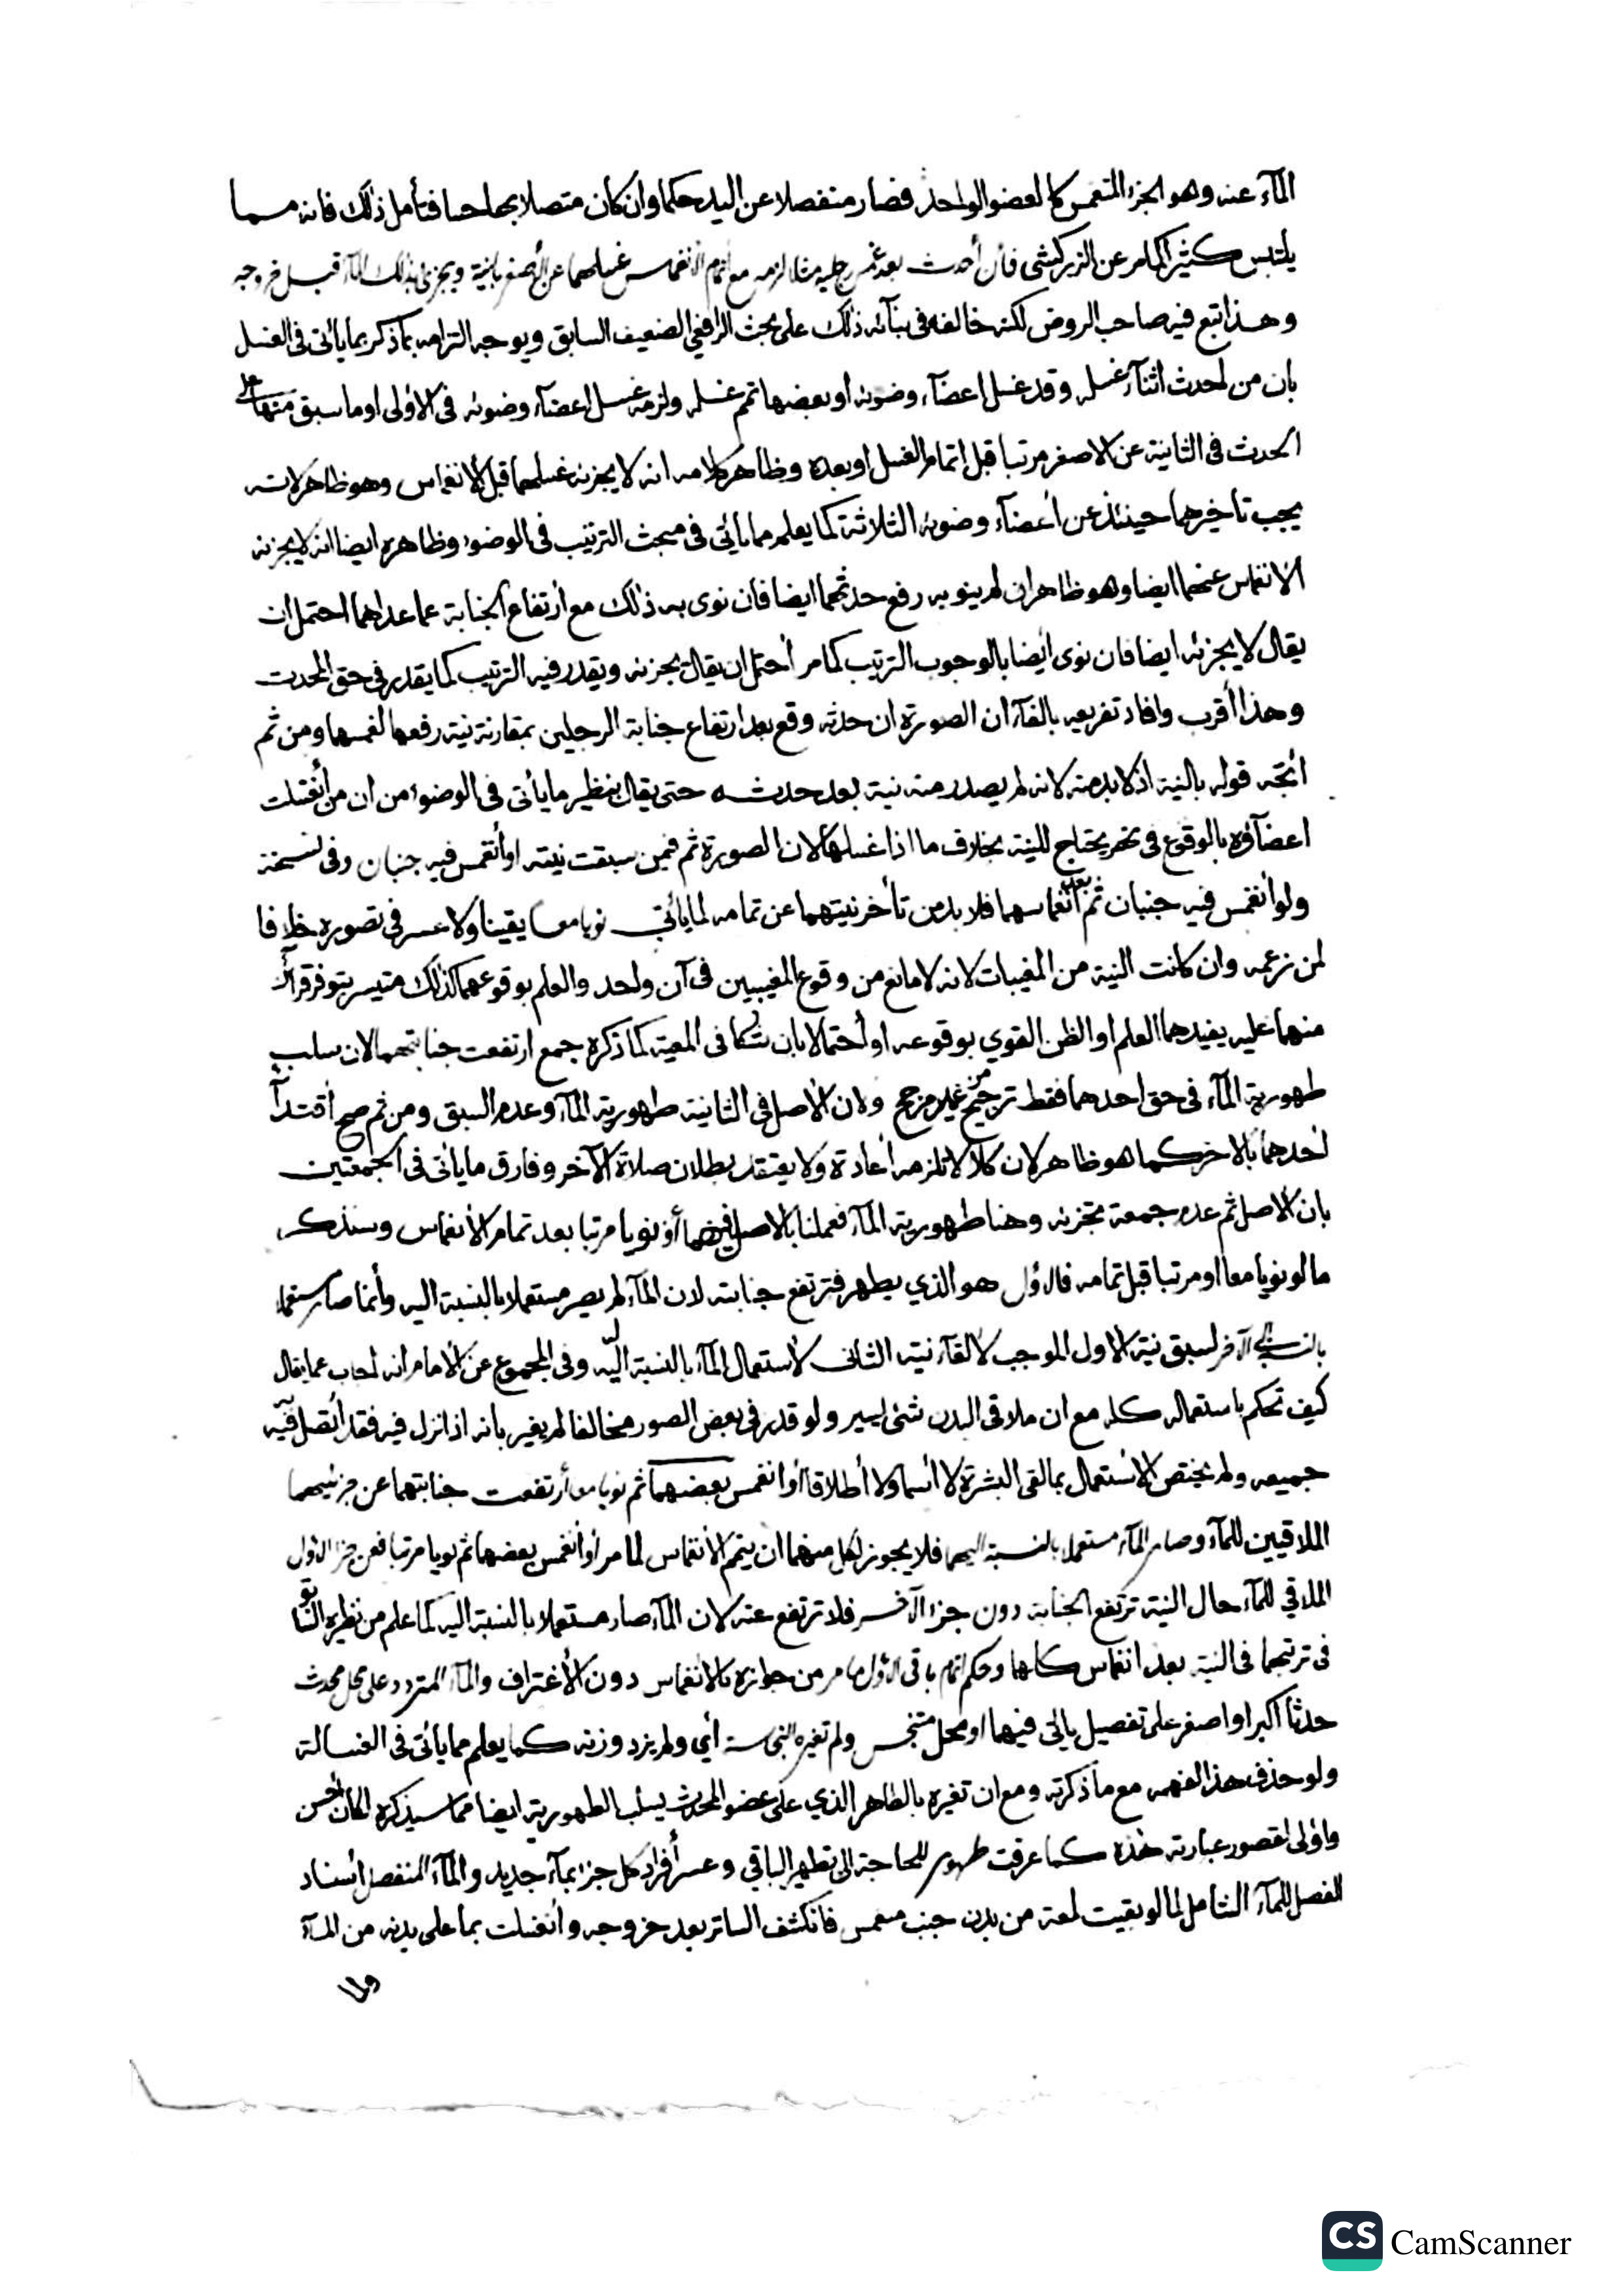 المآء عنه وهو الجزء المنغمس كالعضو الواحد فصار منفصلا عن اليد حكما وان كان متصلا بها حسا فتأمل ذلك فانه مما
يلتبس كثيرا كما مر عن الزركشي فأن أحدث بعد غمس رجليه مثلا لزمه مع إتمام الانغماس غسلهما عن الأصغر بالنية ويجزئ بذلك المآء قبل خروجه
وهذا تبع فيه صاحب الروض لكنه خالفه في بنآئه ذلك على بحث الرافعي الضعيف السابق ويوجه التزامه بما ذكر بما يأتي في الغسل
بان من أحدث اثنآء غسله وقد غسل اعضآء وضوئه او بعضها تمم غسله ولزمه غسل اعضآء وضوئه في الاولى او ما سبق منها على
الحدث في الثانية عن الاصغر مرتبا قبل اتمام الغسل او بعده وظاهر كلامه انه لا يجزئه غسلهما قبل الانغماس وهو ظاهر لانه
يجب تاخيرهما حينئذ عن أعضآء وضوئه الثلاثة كما يعلم مما يأتي في مبحث الترتيب في الوضوء وظاهره ايضا انه لا يجزئه
الانغماس عنهما ايضا وهو ظاهر ان لم ينو به رفع حدثهما ايضا فان نوى به ذلك مع أرتفاع الجنابة عما عداهما احتمل ان
يقال لا يجزئه ايضا فان نوى أيضا بالوجوب الترتيب كما مر أحتمل ان يقال يجزئه ويقدر فيه الترتيب كما يقدر في حق المحدث
وهذا أقرب وافاد تفريعه بالفآء ان الصورة ان حدثه وقع بعد ارتفاع جنابة الرجلين بمقارنة نية رفعها لغمسها ومن ثم
اتجه قوله بالنية اذ لا بد منه لانه لم يصدر منه نية بعد حدثه حتى يقال بنظير ما يأتي في الوضوء من ان من أنغسلت
اعضآؤه بالوقوع في نهر يحتاج للنية بخلاف ما اذا غسلها لان الصورة ثم فيمن سبقت نيته او أنغمس فيه جنبان وفي نسخة
ولو أنغمس فيه جنبان ثم بعد انغماسهما فلا بد من تأخر نيتهما عن تمامه لما يأتي نويا معا يقينا ولا عسر في تصوره خلافا
لمن زعمه وان كانت النية من المغيبات لانه لا مانع من وقوع المغيبين في آن واحد والعلم بوقوعهما كذلك متيسر بتوفر قرآئن
منهما عليه يفيدهما العلم او الظن القوي بوقوعه او أحتمالا بان شكا في المعية كما ذكره جمع ارتفعت جنابتهما لان سلب
طهورية المآء في حق احدهما فقط ترجيح من غير مرجح ولان الأصل في الثانية طهورية المآء وعدم السبق ومن ثم صح أقتدآء
أحدهما بالاخر كما هو ظاهر لان كلا لا تلزمه أعادة ولا يعتقد بطلان صلاة الآخر وفارق ما يأتي في الجمعتين
بان الاصل ثم عدم جمعة مجزئه وهنا طهورية المآء فعملنا بالاصل فيهما أو نويا مرتبا بعد تمام الأنغماس وسنذكر
ما لو نويا معا او مرتبا قبل تمامه فالاول هو الذي يطهر فترتفع جنابته لان المآء لم يصر مستعملا بالنسبة اليه وأنما صار مستعملا
بالنسبة الى الآخر لسبق نية الاول الموجب لالغآء نية الثاني لأستعمال المآء بالنسبة اليه وفي المجموع عن الامام انه أجاب عما يقال
كيف تحكم باستعماله كله مع ان ملاقي البدن شئ يسير ولو قدر في بعض الصور مخالفا لم يغير بانه اذا نزل فيه فقد أتصل فيه
جميعه ولم يختص الاستعمال بما لقي البشرة لا أسما ولا أطلاقا أو انغمس بعضهما ثم نويا معا أرتفعت جنابتهما عن جزئيهما
الملاقيين للمآء وصار المآء مستعملا بالنسبة اليهما فلا يجوز لكل منهما ان يتمم الأنغماس لما مر أو أنغمس بعضهما ثم نويا مرتبا فعن جزء الاول
الملاقي للمآء حال النية ترتفع الجنابة دون جزء الآخر فلا ترتفع عنه لان المآء صار مستعملا بالنسبة اليه كما علم من نظيره السابق
في ترتبهما في النية بعد انغماس كلهما وحكم إتمام باقي الاول ما مر من جوازه بالانغماس دون الأغتراف والمآء المتردد على محل محدث
حدثا أكبر او اصغر على تفصيل يأتي فيهما او محل متنجس ولم تغيره النجاسة أي ولم يزد وزنه كما يعلم مما يأتي في الغسالة
ولو حذف هذا لفهمه مع ما ذكرته ومع ان تغيره بالطاهر الذي على عضو المحدث يسلب الطهورية ايضا مما سيذكره لكان أحسن
واولى لقصور عبارته هذه كما عرفت طهور للحاجة الى تطهير الباقي وعسر أفراد كل جزء بمآء جديد والمآء المنفصل أسناد
الفصل للمآء الشامل لما لو بقيت لمعة من بدن جنب منغمس فانكشف الساتر بعد خروجه وأنغسلت بما على بدنه من المآء